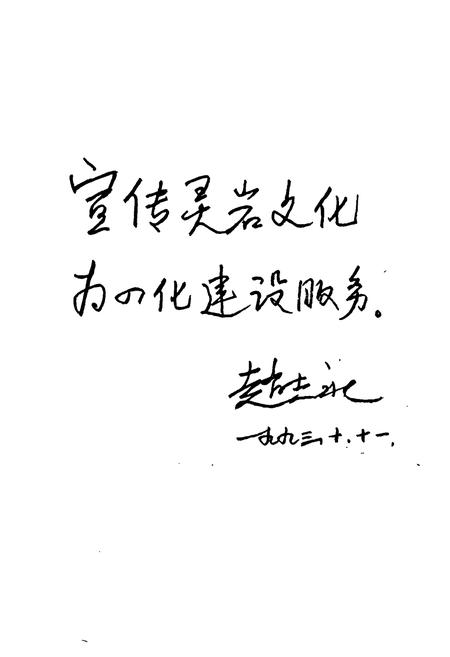 宣传灵岩文化
为四化建设服务。
赵志
一九九三、十、十一、